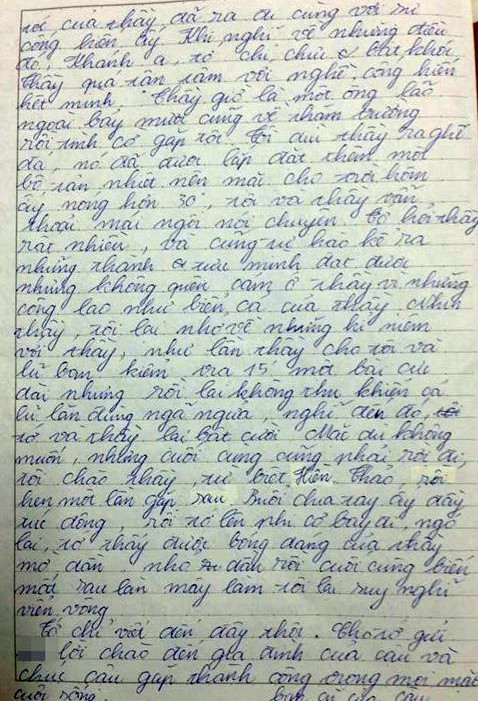 tới của thầy đã ra đi cùng với sự
cống hiến ấy. Khi nghĩ về những điều
đó, Khanh ạ, tớ chỉ chực bật khóc.
Thầy quá tận tâm với nghề, cống hiến
hết mình. Thầy giờ là một ông lão
ngoài bảy mươi cũng về thăm trường
rồi tình cờ gặp tôi. Tôi dìu thầy ra ghế
đá, nó đã được lắp đặt thêm một
bộ tản nhiệt nên mặc cho trời hôm
ấy nóng hơn 30°, tôi và thầy vẫn
thoải mái ngồi nói chuyện. Tớ hỏi thầy
rất nhiều, và cũng tự hào kể ra
những thành tựu mình đạt được
nhưng không quên cảm ơn thầy vì những
công lao như biển cả của thầy. Nhìn
thầy, tôi lại nhớ về những kỉ niệm
với thầy, như lần thầy cho tôi và
lũ bạn kiểm tra 15' một bài cực
dài nhưng rồi lại không thu khiến cả
lũ lăn đùng ngã ngửa, nghĩ đến đó,
tớ và thầy lại bật cười. Mặc dù không
muốn, nhưng cuối cùng cũng phải rời đi,
tôi chào thầy, từ biệt Hiền Thảo, rồi
hẹn một lần gặp sau. Buổi chia tay ấy đầy
xúc động, rồi tớ lên phi cơ bay đi, ngó
lại, tớ thấy được bóng dáng của thầy
mờ dần, nhỏ dần rồi cuối cùng biến
mất sau làn mây làm tôi lại suy nghĩ
viển vông.
Tớ chỉ viết đến đây thôi. Cho tớ gửi
lời chào đến gia đình của cậu và
chúc cậu gặp thành công trong mọi mặt
cuộc sống. bạn cũ của cậu